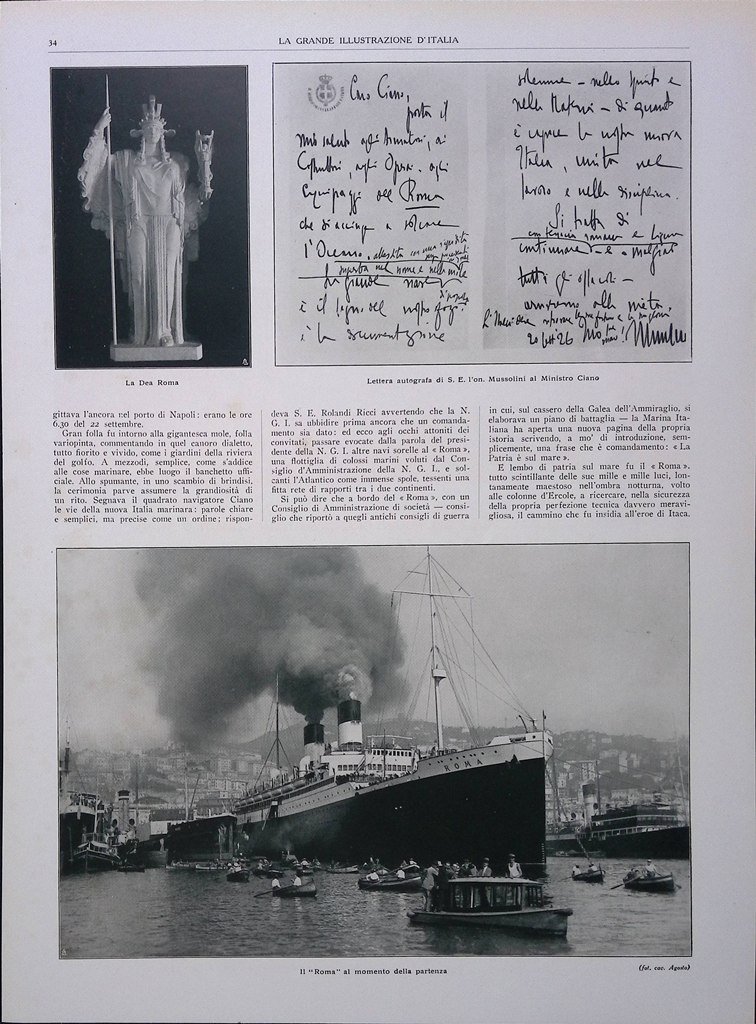 34
LA GRANDE ILLUSTRAZIONE D'ITALIA
Caro Ciano,
porta il
mio saluto agli Armatori, ai
Costruttori, agli Operai, agli
Equipaggi del Roma
che si accinge a solcare
l'Oceano.
superba nel nome e nella mole
La grande nave
è il segno del nostro
è la documentazione
solenne — nello spirito e
nella materia — di quanto
è capace la nostra nuova
Italia, unita nel
lavoro e nella disciplina.
Si tratta di
continuare e
tutti gli ostacoli —
arriveremo alla meta.
Mussolini
La Dea Roma
Lettera autografa di S. E. l'on. Mussolini al Ministro Ciano
gittava l'ancora nel porto di Napoli: erano le ore
6,30 del 22 settembre.
Gran folla fu intorno alla gigantesca mole, folla
variopinta, commentando in quel canoro dialetto,
tutto fiorito e vivido, come i giardini della riviera
del golfo. A mezzodì, semplice, come s'addice
alle cose marinare, ebbe luogo il banchetto uffi-
ciale. Allo spumante, in uno scambio di brindisi,
la cerimonia parve assumere la grandiosità di
un rito. Segnava il quadrato navigatore Ciano
le vie della nuova Italia marinara: parole chiare
e semplici, ma precise come un ordine; rispon-
deva S. E. Rolandi Ricci avvertendo che la N.
G. I. sa ubbidire prima ancora che un comanda-
mento sia dato: ed ecco agli occhi attoniti dei
convitati, passare evocate dalla parola del presi-
dente della N. G. I. altre navi sorelle al « Roma »,
una flottiglia di colossi marini voluti dal Con-
siglio d'Amministrazione della N. G. I., e sol-
canti l'Atlantico come immense spole, tessenti una
fitta rete di rapporti tra i due continenti.
Si può dire che a bordo del « Roma », con un
Consiglio di Amministrazione di società — consi-
glio che riportò a quegli antichi consigli di guerra
in cui, sul cassero della Galea dell'Ammiraglio, si
elaborava un piano di battaglia — la Marina Ita-
liana ha aperta una nuova pagina della propria
istoria scrivendo, a mo' di introduzione, sem-
plicemente, una frase che è comandamento: « La
Patria è sul mare ».
E lembo di patria sul mare fu il « Roma »,
tutto scintillante delle sue mille e mille luci, lon-
tanamente maestoso nell'ombra notturna, volto
alle colonne d'Ercole, a ricercare, nella sicurezza
della propria perfezione tecnica davvero meravi-
gliosa, il cammino che fu insidia all'eroe di Itaca.
ROMA
Il "Roma" al momento della partenza
(fot. cav. Agosto)